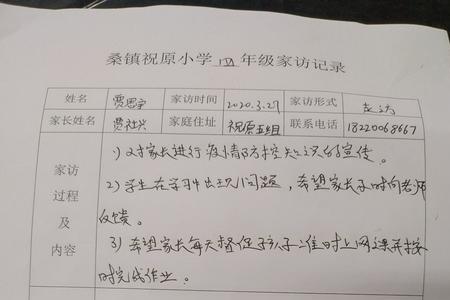 桑镇祝原小学四年级家访记录
姓名 贾思宇 家访时间 2020.3.27 家访形式 走访
家长姓名 贾社兴 家庭住址 祝原五组 联系电话 18220068667
家访过程及内容
1)对家长进行疫情防控知识的宣传。
2)学生在学习中出现问题,希望家长及时向老师
反馈。
3)希望家长每天督促孩子准时上网课并按
时完成作业。